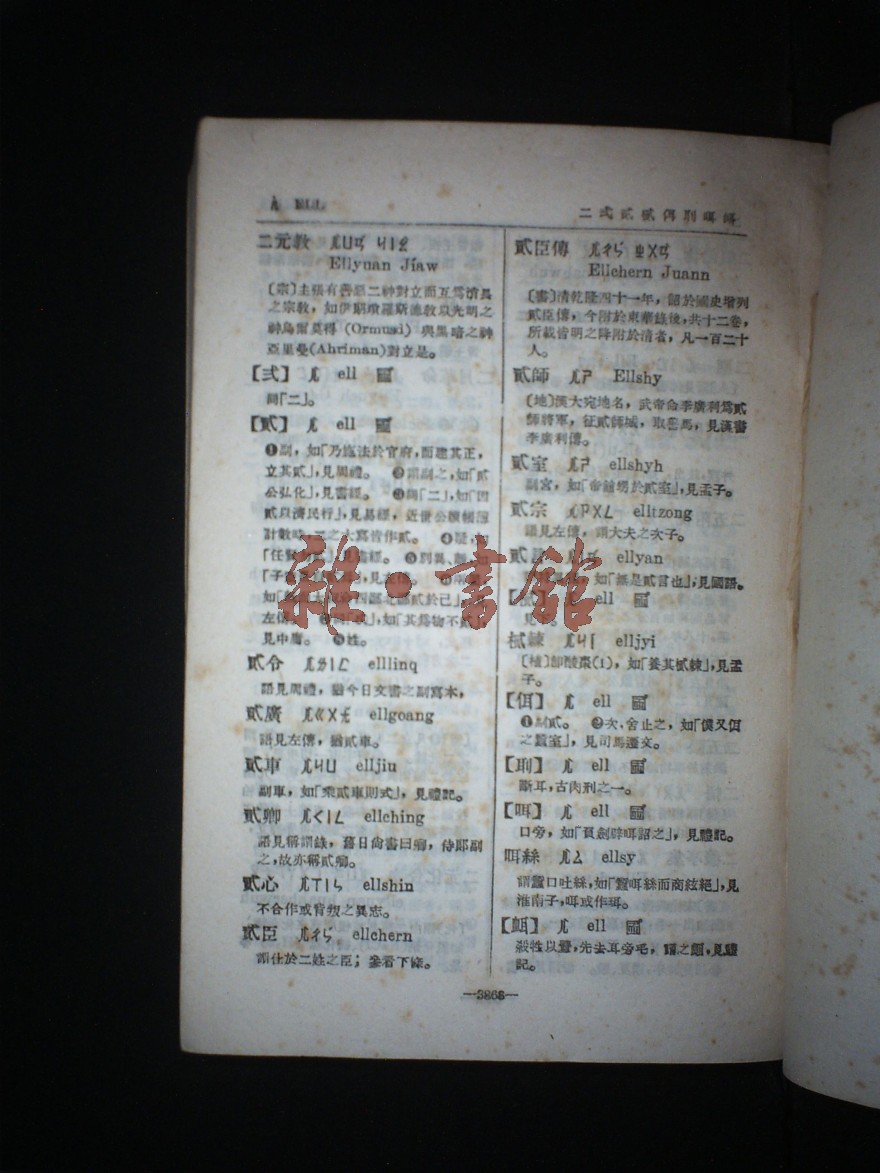 ㄦ ELL
二弍貳樲佴刵咡衈
二元教 ㄦㄩㄢ ㄐㄧㄠ
Ellyuan Jiaw
〔宗〕主張有善惡二神對立而互爲消長
之宗教,如伊期噴羅斯德教以光明之
神烏爾莫得(Ormusd)與黑暗之神
亞里曼(Ahriman)對立是。
【弍】 ㄦ ell
同「二」。
【貳】 ㄦ ell
❶副,如「乃施法於官府,而建其正,
立其貳」,見周禮。 ❷謂副之,如「貳
公弘化」,見書經。 ❸同「二」,如「因
貳以濟民行」,見易經,近世公牘帳簿
計數時,二之大寫皆作貳。 ❹疑,
「任賢勿貳」,見書經。
左傳。 如「其爲物不貳」,
見中庸。 姓。
貳令 ㄦㄌㄧㄥ elllinq
語見周禮,猶今日文書之副寫本,
貳廣 ㄦㄍㄨㄤ ellgoang
語見左傳,猶貳車。
貳車 ㄦㄐㄩ elljiu
副車,如「乘貳車則式」,見禮記。
貳卿 ㄦㄑㄧㄥ ellching
語見稱謂錄,舊日尚書曰卿,侍郎副
之,故亦稱貳卿。
貳心 ㄦㄒㄧㄣ ellshin
不合作或背叛之異志。
貳臣 ㄦㄔㄣ ellchern
謂仕於二姓之臣;參看下條。
貳臣傳 ㄦㄔㄣ ㄓㄨㄢ
Ellchern Juann
〔書〕清乾隆四十一年,詔於國史增列
貳臣傳,今附於東華錄後,共十二卷,
所載皆明之降附於清者,凡一百二十
人。
貳師 ㄦㄕ Ellshy
〔地〕漢大宛地名,武帝命李廣利爲貳
師將軍,征貳師城,取善馬,見漢書
李廣利傳。
貳室 ㄦㄕ ellshyh
副宮,如「帝館甥於貳室」,見孟子。
貳宗 ㄦㄗㄨㄥ elltzong
語見左傳,謂大夫之次子。
貳言 ㄦㄧㄢ ellyan
如「無是貳言也」,見國語。
【樲】 ㄦ ell
見
樲棘 ㄦㄐㄧ elljyi
〔植〕卽酸棗(1),如「養其樲棘」,見孟
子。
【佴】 ㄦ ell
❶副貳。 ❷次,舍止之,如「僕又佴
之蠶室」,見司馬遷文。
【刵】 ㄦ ell
斷耳,古肉刑之一。
【咡】 ㄦ ell
口旁,如「負劍辟咡詔之」,見禮記。
咡絲 ㄦㄙ ellsy
謂蠶口吐絲,如「蠶咡絲而商絃絕」,見
淮南子,咡或作珥。
【衈】 ㄦ ell
殺牲以釁,先去耳旁毛,謂之衈,見禮
記。
—3866—
雜·書館